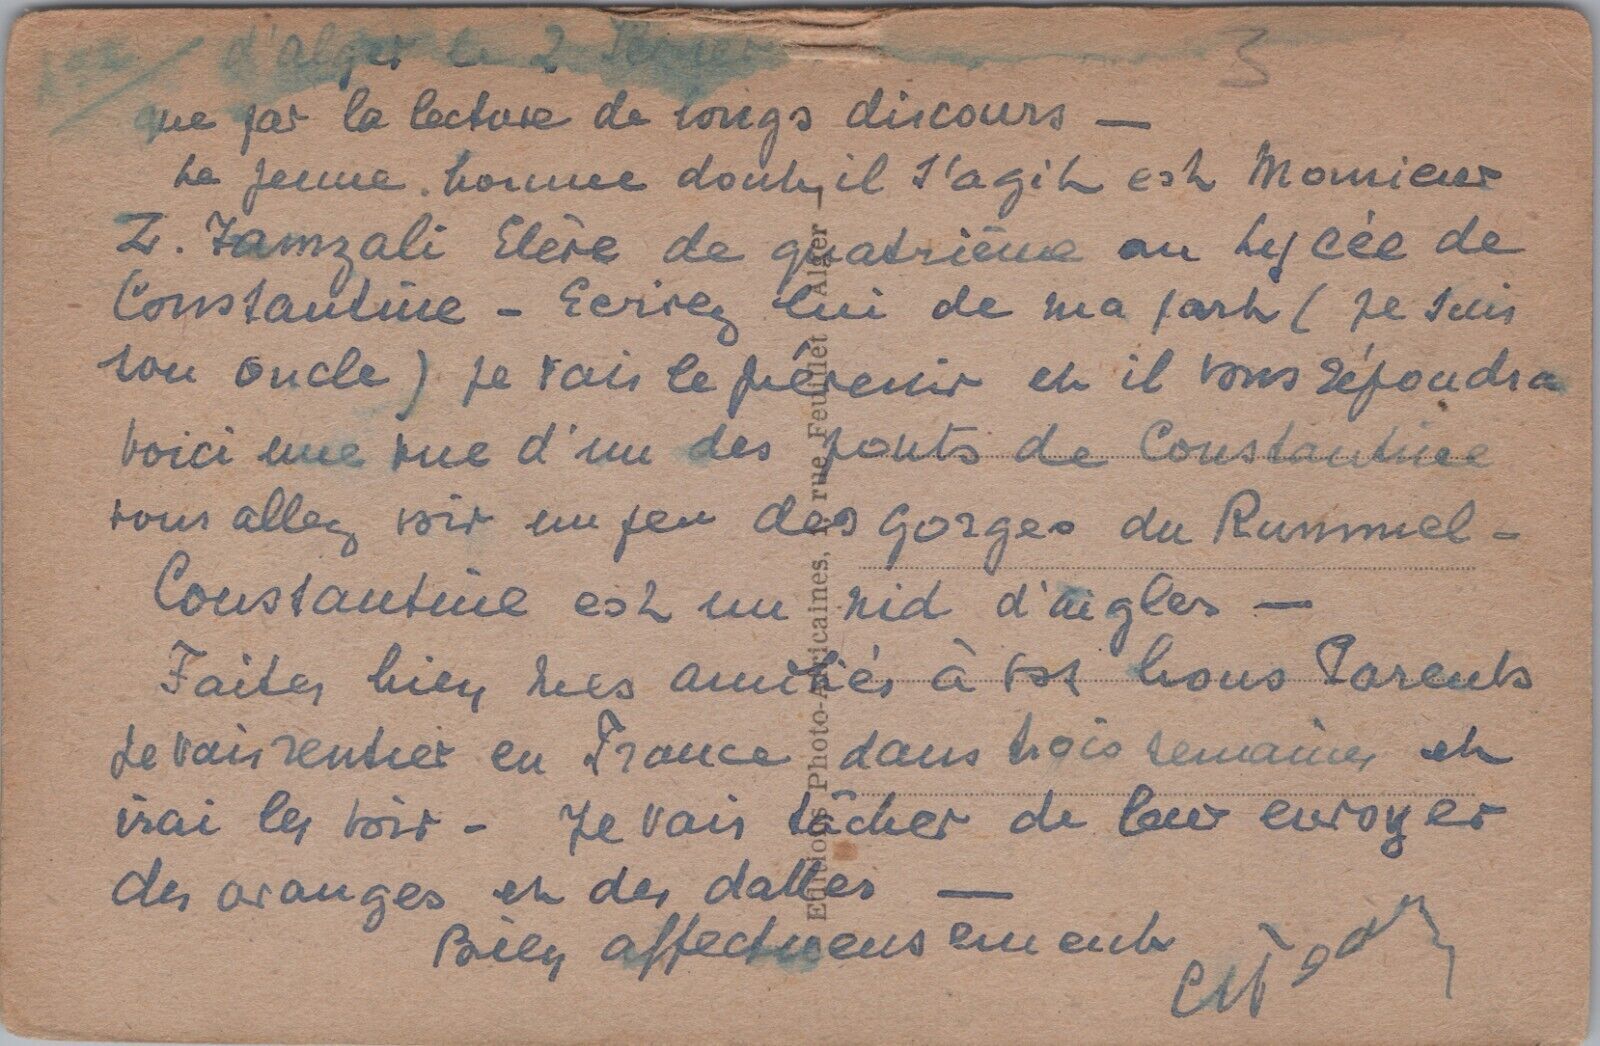 d'alger le 2 février
3
que par la lecture de longs discours —
Le jeune homme dont il s'agit est Monsieur
Z. Tamzali Elève de quatrième au Lycée de
Constantine - Ecrivez lui de ma part ( je suis
son oncle ) je vais le prévenir et il vous répondra
voici une vue d'un des ponts de Constantine
vous allez voir un peu des gorges du Rummel -
Constantine est un nid d'aigles —
Faites bien mes amitiés à vos bons Parents
je vais rentrer en France dans trois semaines et
irai les voir - Je vais tâcher de leur envoyer
des oranges et des dattes —
Bien affectueusement
Editions Photo-Africaines, rue Feuillet Alger